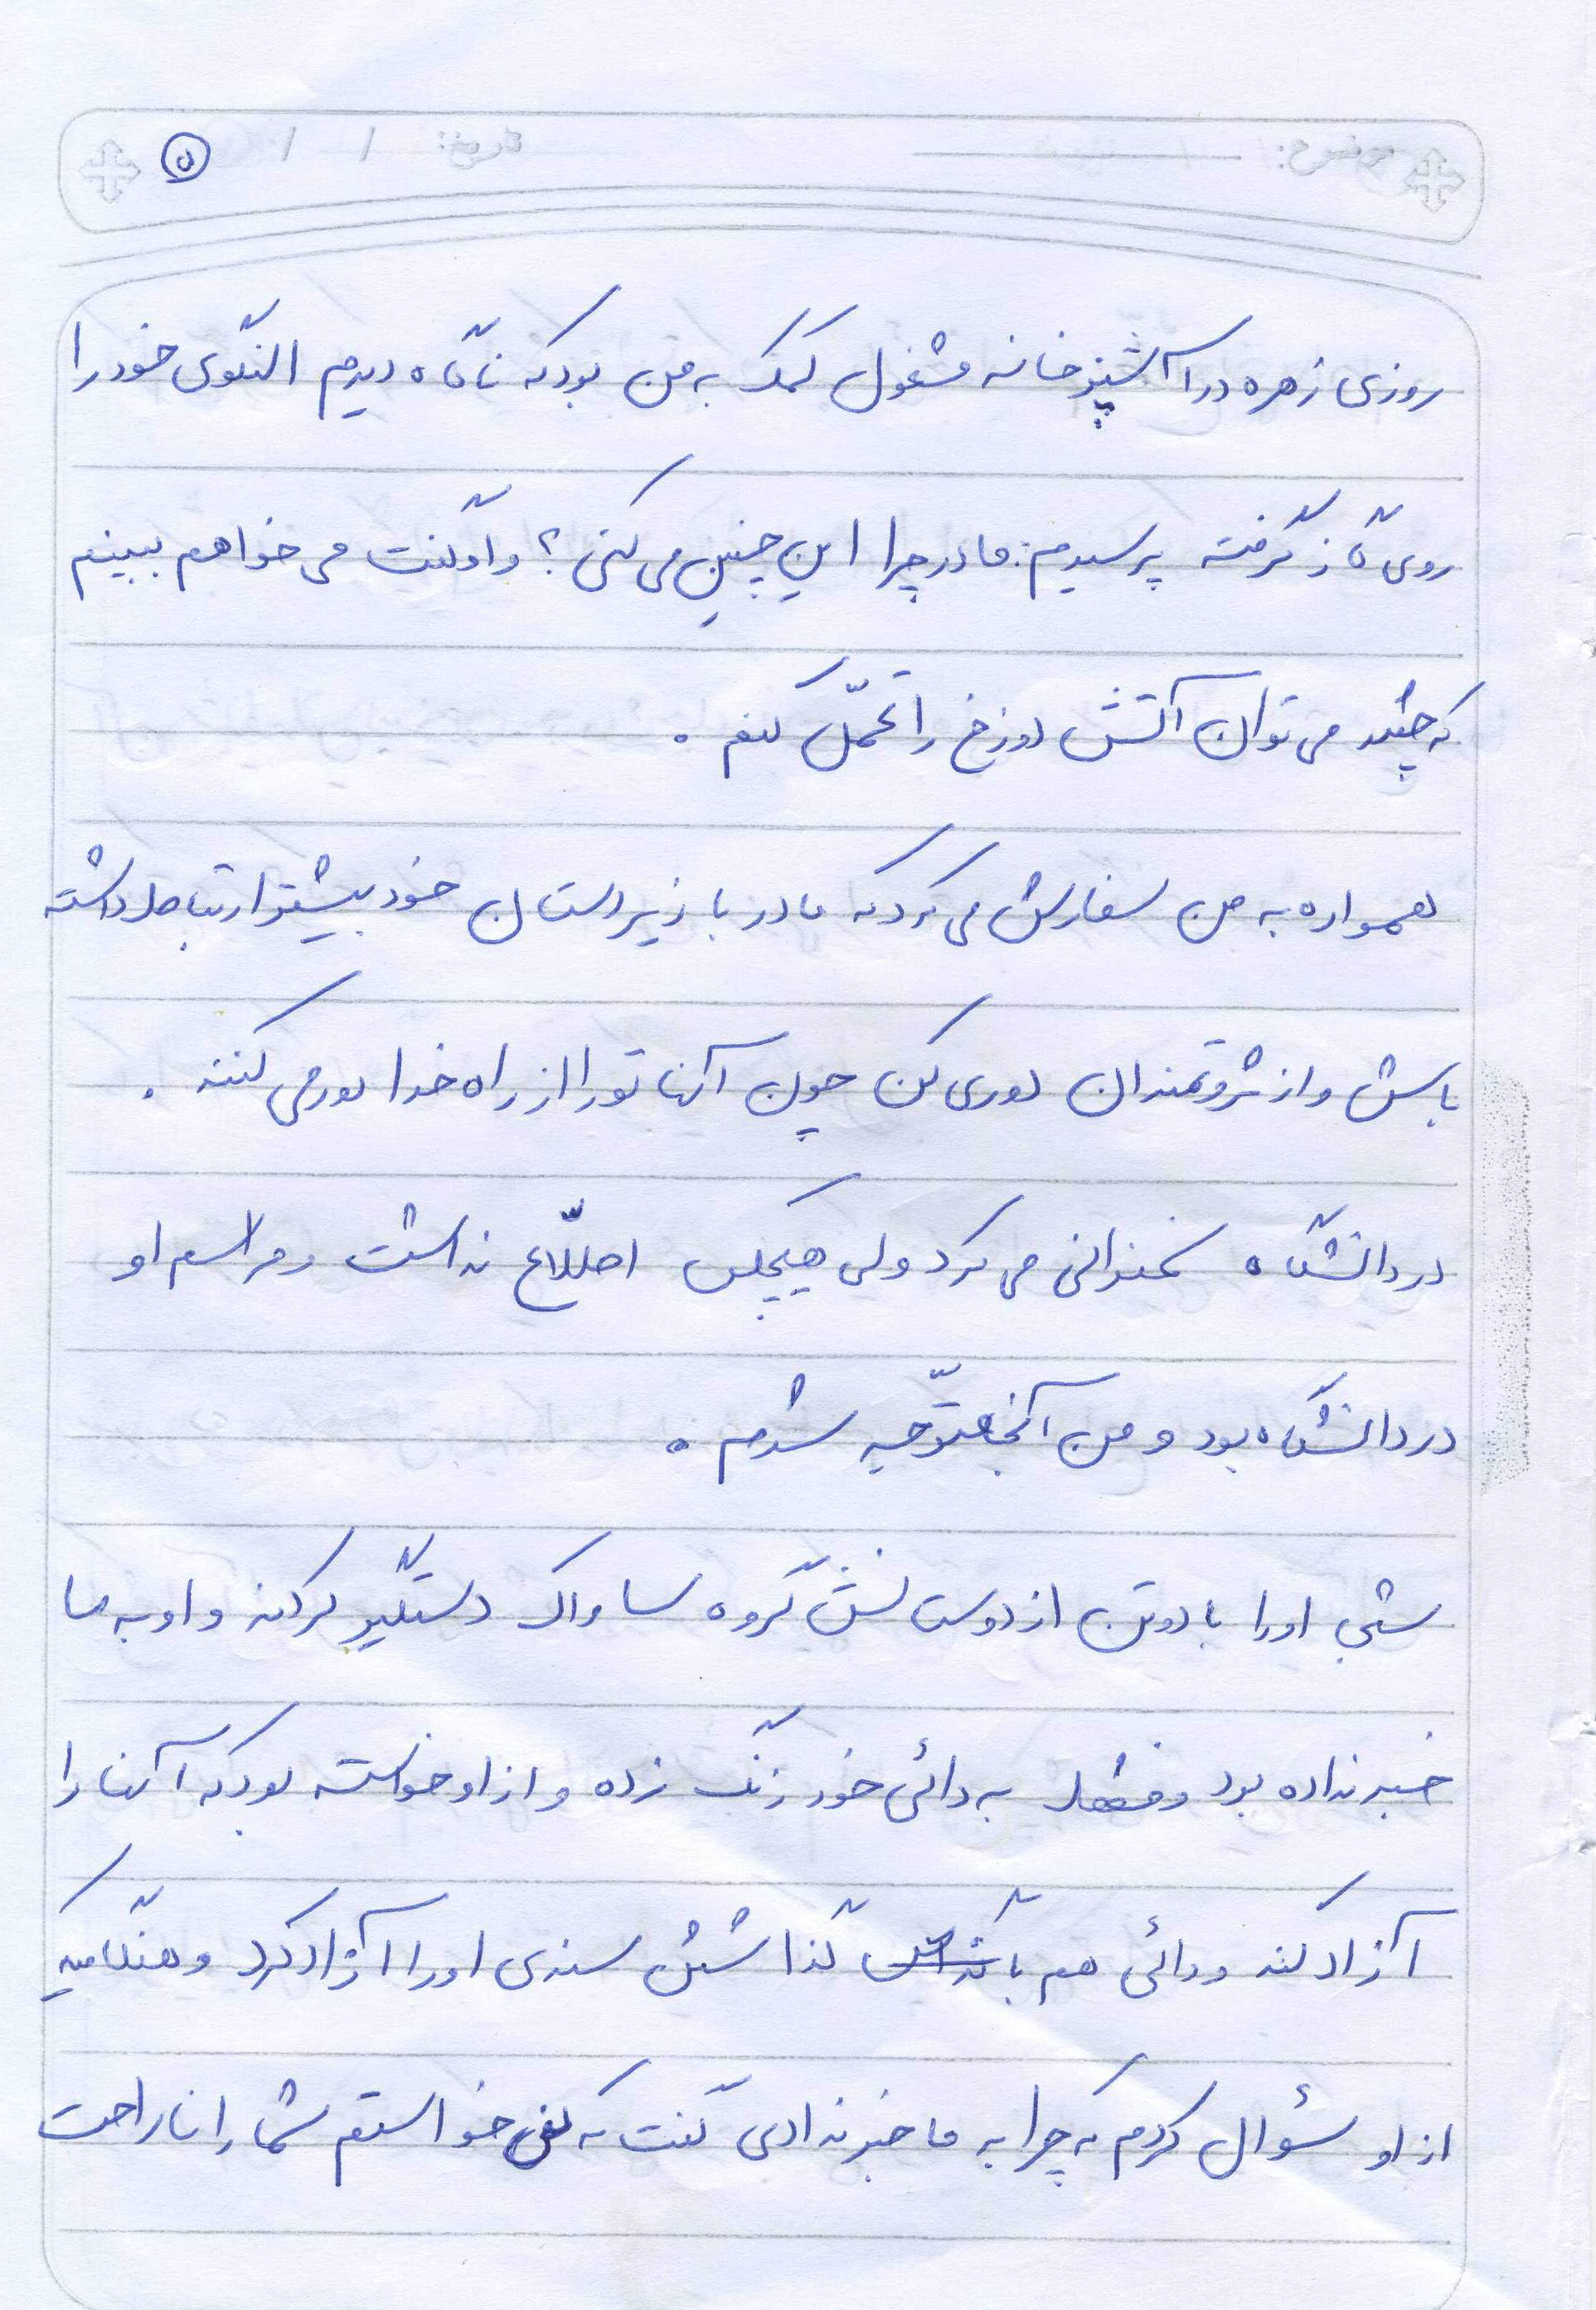 موضوع: تاریخ: / / ۵
روزی زهره در آشپزخانه مشغول کمک به من بود که ناگاه دیدم النگوی خود را
روی گاز گرفته پرسیدم: مادر چرا این چنین می کنی؟ و او گفت می خواهم ببینم
که چقدر می توان آتش دوزخ را تحمّل کنم.
همواره به من سفارش می کرد که مادر با زیردستان خود بیشتر ارتباط داشته
باش و از ثروتمندان دوری کن چون آنها تو را از راه خدا دور می کنند.
در دانشگاه سخنرانی می کرد ولی هیچکس اطلّاع نداشت و مراسم او
در دانشگاه بود و من آنجا متوّجه شدم.
شبی او را با دو تن از دوستانش گروه ساواک دستگیر کردند و او به ما
خبر نداده بود و فقط به دائی خود زنگ زده و از او خواسته بود که آنها را
آزاد کند و دائی هم با گذاشتن سندی او را آزاد کرد و هنگامیکه
از او سؤال کردم که چرا به ما خبر ندادی گفت که نمی خواستم شما را ناراحت